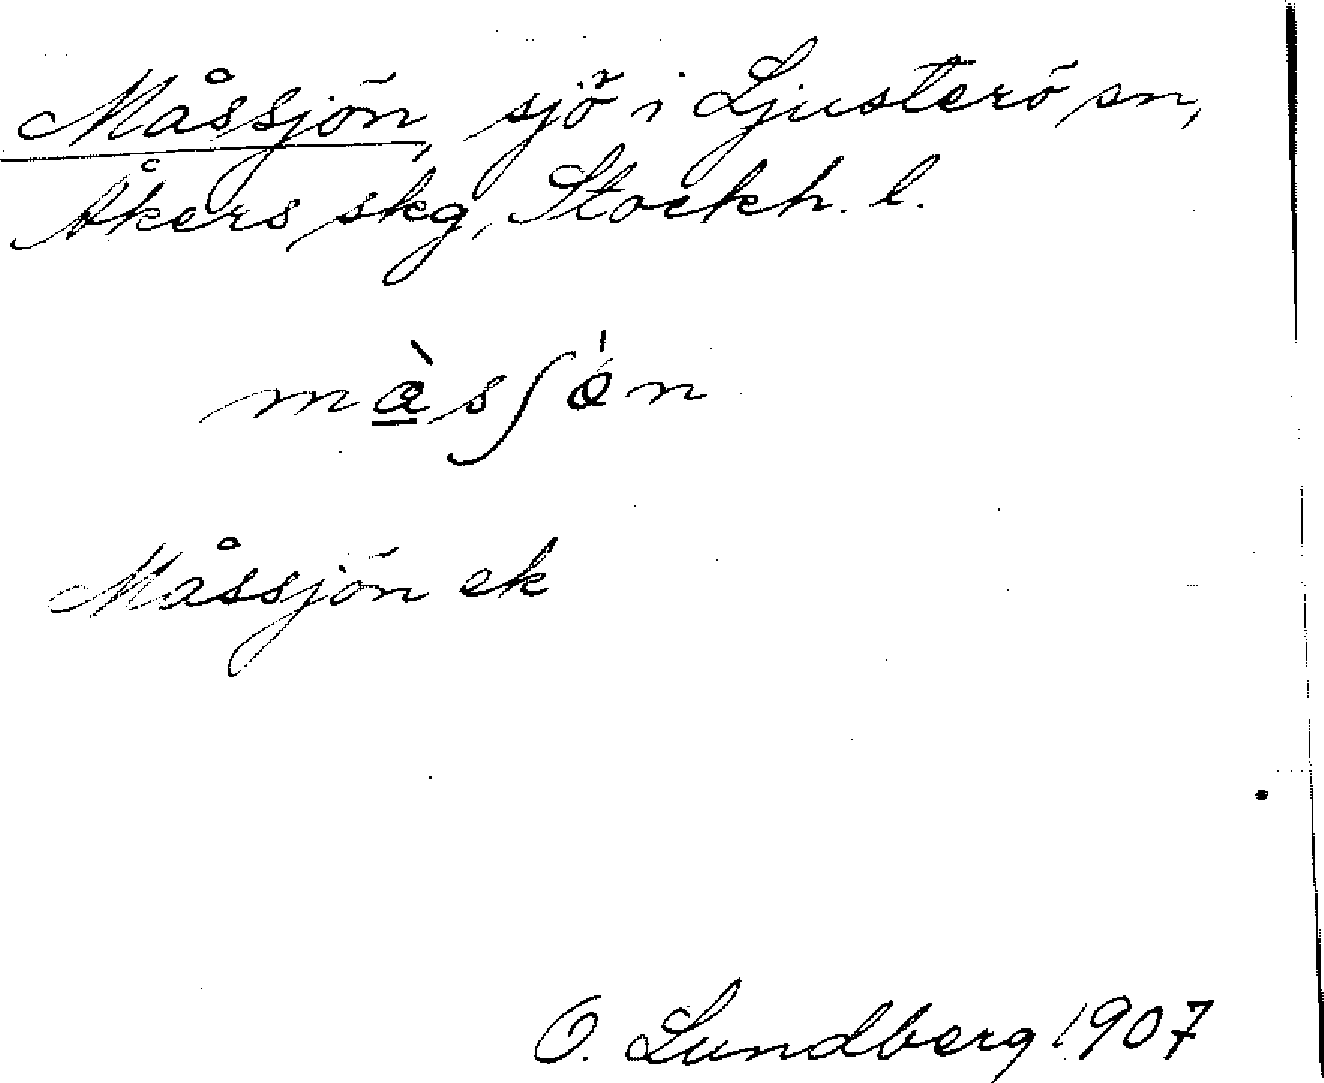 Måssjön, sjö i Ljusterö sn,
Åkers skg, Stockh. l.
mὰsʃön
Måssjön ek
O. Lundberg 1907